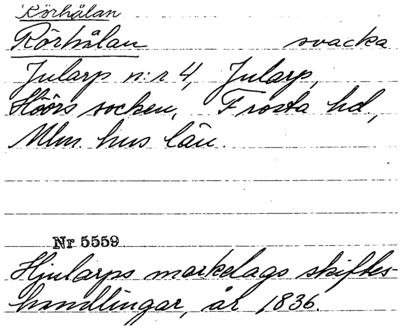 Rörhålan
Rörhålan svacka
Jularp n:r 4, Jularp,
Höörs socken, Frosta hd,
Mlm. hus län.
Nr 5559
Hjularps markelags skiftes-
handlingar, år 1836.